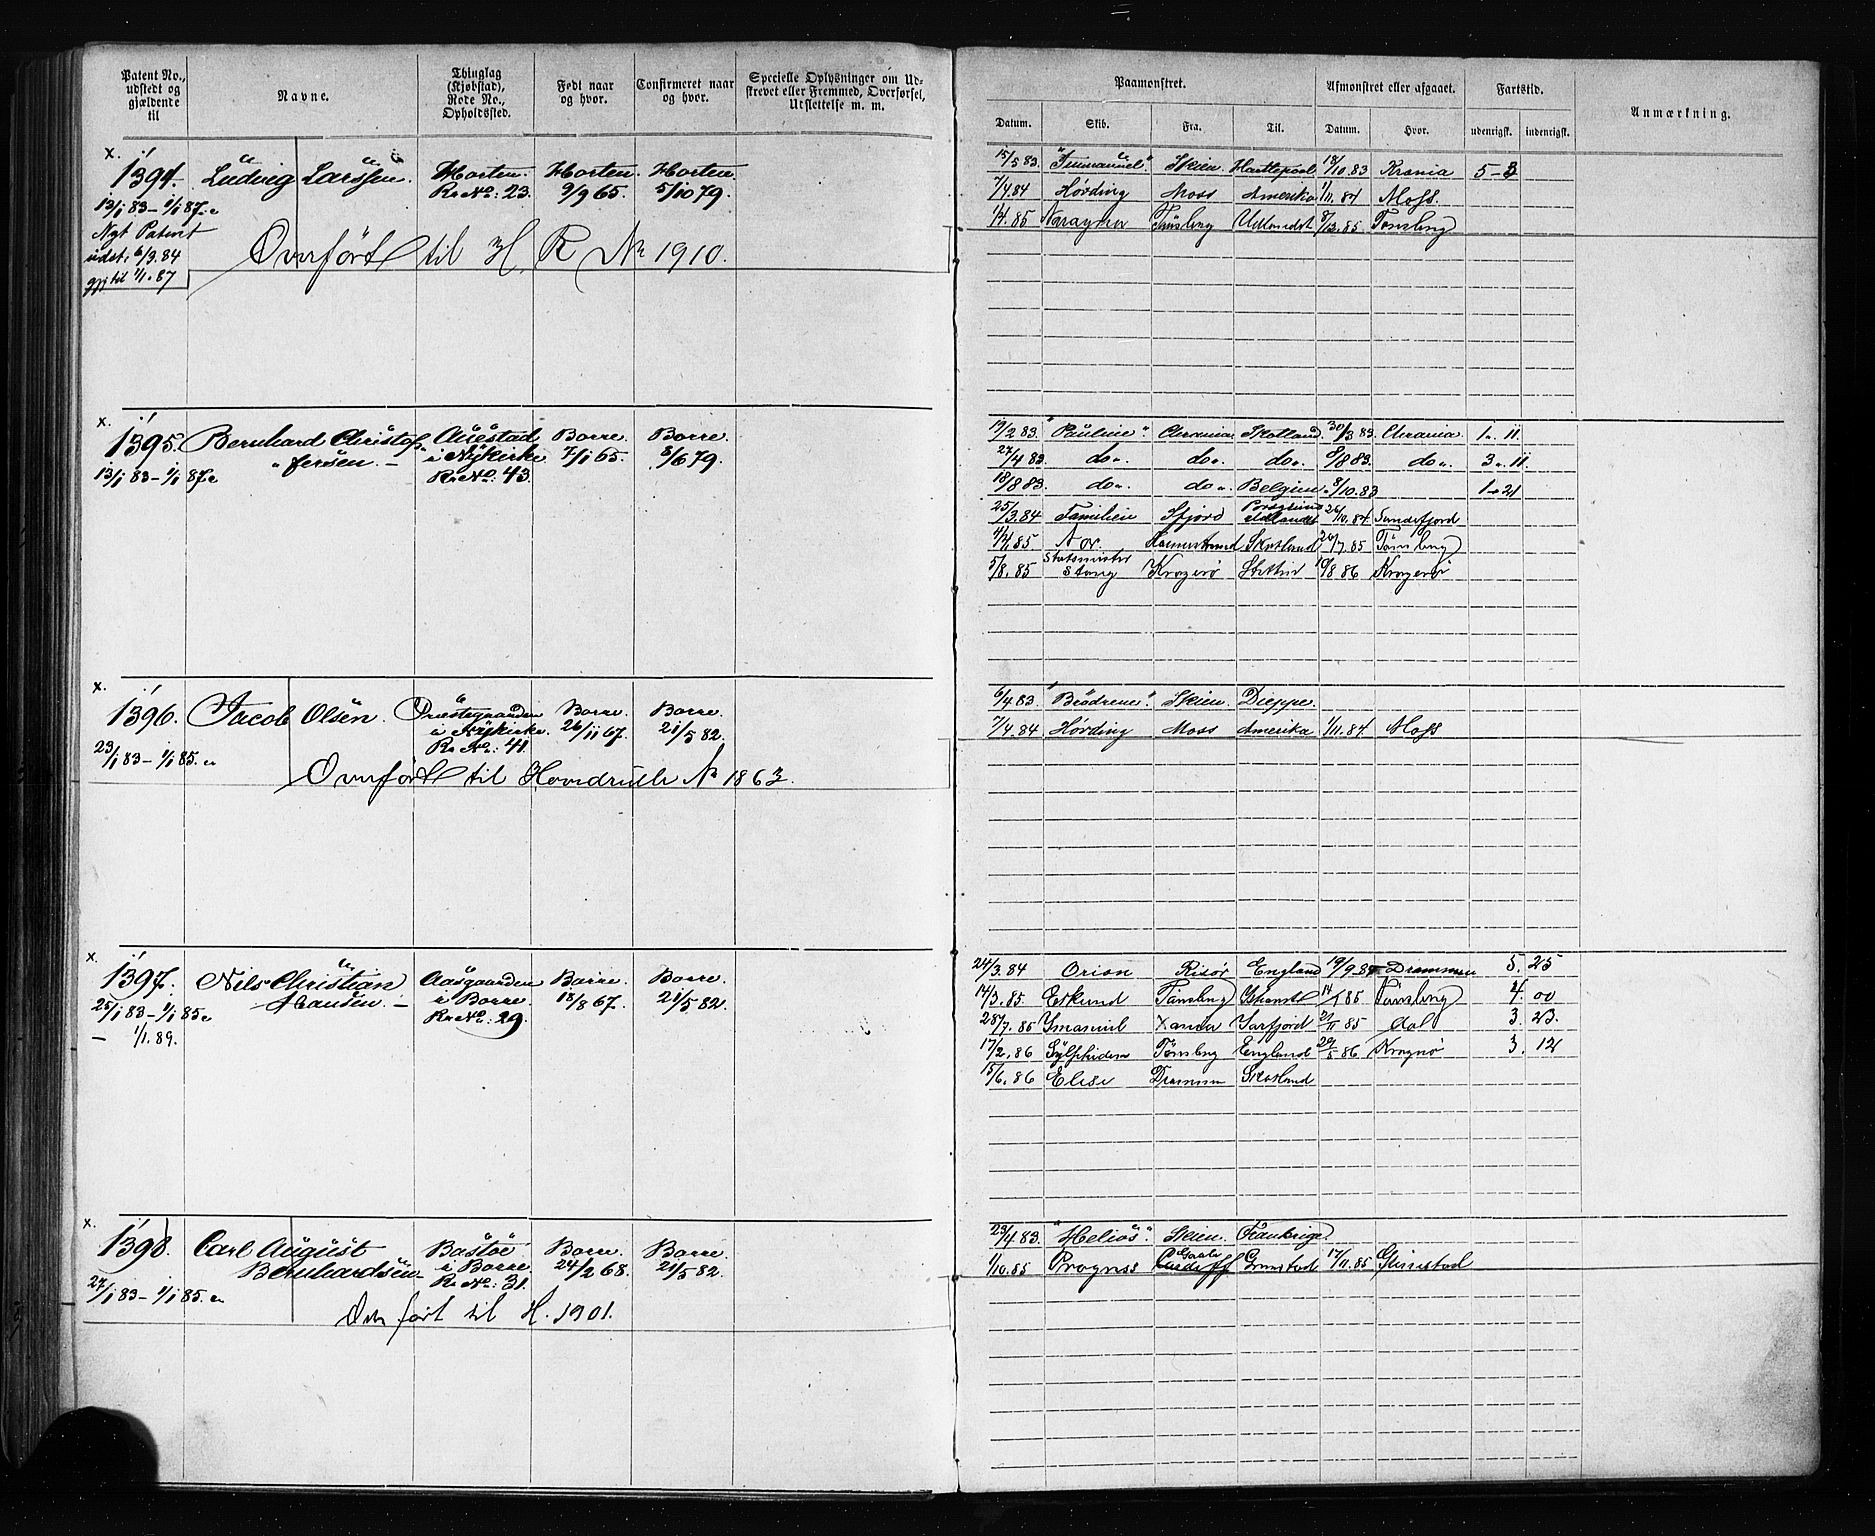 Patent No., udstedt og gjældende til
Navne.
Thinglag (Kjøbstad), Rode No., Opholdssted.
Født naar og hvor.
Confirmeret naar og hvor.
Specielle Oplysninger om Udskrevet eller Fremmed, Overførsel, Utslettelse m. m.
Paamønstret.
Afmønstret eller afgaaet.
Fartstid.
Anmærkning.
Datum. Skib. Fra. Til. Datum. Hvor. udenrigsk. indenrigsk.
x.
1394. Ludvig Larssen. Horten. Horten. Horten.
R. No: 23. 9/9 65. 5/10 79.
13/1 83 - 1/1 87.
Nyt Patent
udst. 6/3. 84
gj. til 1/1. 87
Overført til H. R No 1910.
15/5 83. "Immanuel". Skien. Hartlepool 18/10 83 Krania 5-3
7/4. 84 Hørding Moss Amerika 1/11. 84 Moss.
1/4. 85 Tønsberg Udlandet 8/12. 85 Tønsberg
x.
1395. Bernhard Christof- Borre. Borre.
fersen. i Nykirke 7/1 65. 8/6 79.
13/1 83 - 1/1 87. R. No: 43.
19/2 83. "Pauline". Chrania Skotland. 30/3 83. Chrania 1. 11.
27/4 83. do. do. do. 8/8 83. do. 3. 11.
18/8 83. do. do. Belgien 8/10. 83 1-21
25/3. 84 Familien Sfjord 26/10. 84 Sandefjord
1/4. 85 Nor. Holmestrand Skotland 20/7. 85 Tønsberg
5/8. 85 Statsminister Stang Kragerø Stettin 10/8 86 Kragerø
x.
1396. Jacob Olsen. Præstegaarden Borre. Borre.
i Nykirke. 26/11 67. 21/5 82.
R. No: 41.
23/1 83 - 1/1 85.
Overført til Hovedrulle No 1863.
6/4 83. "Brødrene". Skien. Dieppe.
7/4. 84 Hørding Moss Amerika 1/11. 84 Moss
x.
1397. Nils Christian Aasgaarden Borre. Borre.
Hansen. i Borre. 18/8 67. 21/5 82.
25/1 83 - 1/1 85 R. No: 29.
- 1/1. 89.
24/3. 84 Orion Risør England 19/9. 84 Drammen 5. 25
14/3. 85 Tønsberg 14/7 85 Tønsberg 4. 00
28/7. 85 21/11 85 3. 23.
17/2. 86 Sylphiden Tønsberg England 29/5 86 Kragerø 3. 12
15/6. 86 Elise Drammen Skotland
x.
1398. Carl August Bastøe Borre. Borre.
Bernhardsen i Borre 24/2 68. 21/5 82.
R. No: 31.
27/1 83 - 1/1 85.
Overført til H. 1901.
23/4 83. "Helios". Skien. Frankrige
1/10. 85 Prognss Cardiff Grimstad 17/11. 85 Grimstad